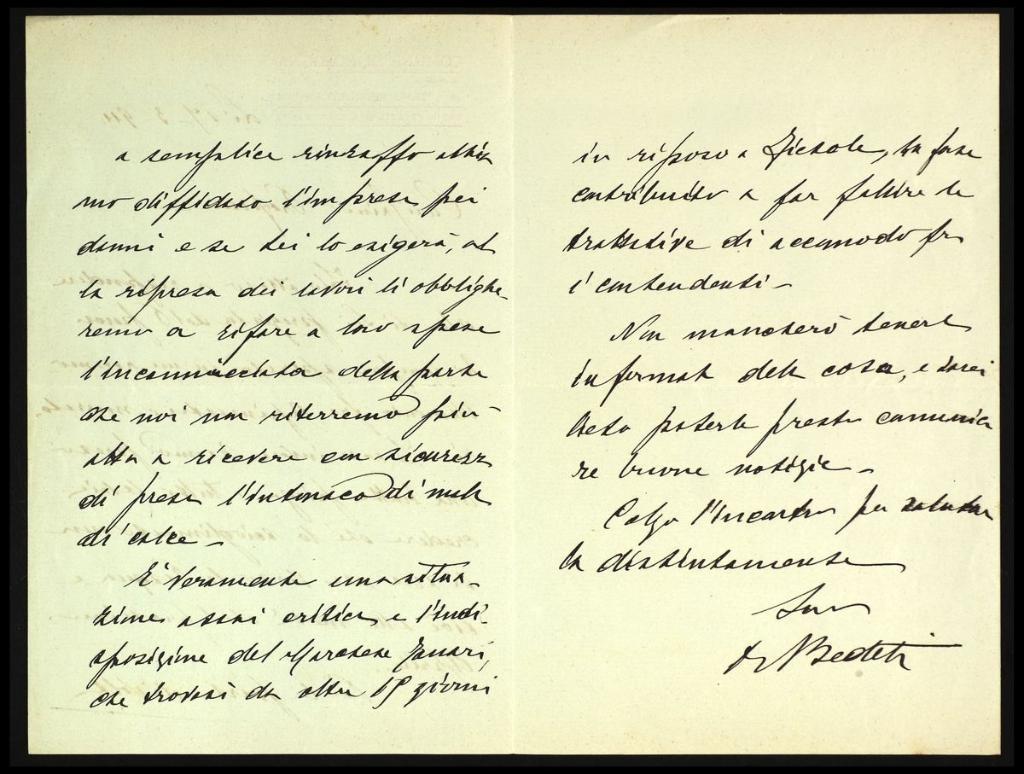 a semplice rinzaffo abbia
mo diffidato l'impresa pei
danni e se Lei lo esigerà, al
la ripresa dei lavori li obblighe
remo a rifare a loro spese
l'incannicciata della parte
che noi non riterremo più
atta a ricevere con sicurezza
di presa l'intonaco di malta
di calce –
È veramente una situa-
zione assai critica e l'indi-
sposizione del Marchese
che trovasi da oltre 15 giorni
in riposo a Fiesole, ha forse
contribuito a far fallire le
trattative di accomodo fra
i contendenti –
Non mancherò tenerla
informata della cosa, e sarei
lieto poterle presto comunica
re buone notizie –
Colgo l'incontro per salutar
la distintamente
Suo
Bedeti